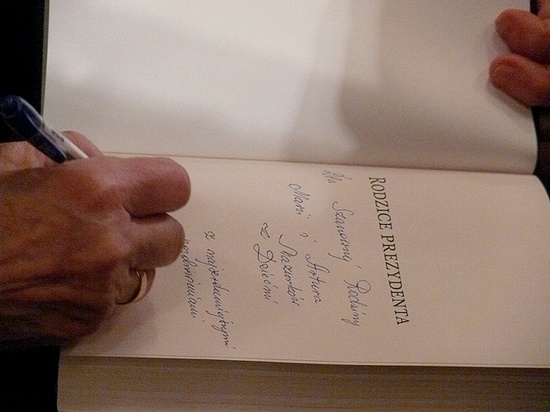 RODZICE PREZYDENTA
Dla Szanownej Rodziny
Marii i Artura
Mazurków
z Dziećmi
z najserdeczniejszymi
pozdrowieniami